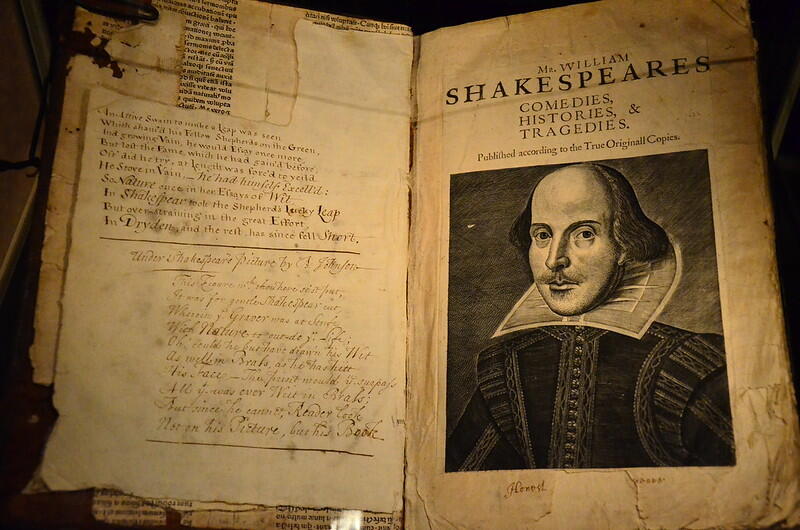 An Active Swain to make a Leap was seen
Which sham'd his Fellow Shepherds on the Green,
And growing Vain, he would Essay once more,
But lost the Fame, which he had gain'd before;
Oft' did he try, at length was forc'd to yeild
He Strove in Vain, — he had himself Excell'd:
So Nature once in her Essays of Wit,
In Shakespear took the Shepherd's Lucky Leap
But over-straining in the great Effort,
In Dryden, and the rest, has since fell Short.
Under Shakespears Picture by Johnson
This Figure yt thou here seest put,
It was for gentle Shakespear cut
Wherein ye Graver was at Strife
With Nature to out-do ye Life;
Oh, could he but have drawn his Wit
As well in Brass, as he has hitt
His Face — The print would yn surpass
All yt was ever Writ in Brass;
But since he cannot, Reader look
Not on his Picture, but his Book
Mr. WILLIAM
SHAKESPEARES
COMEDIES,
HISTORIES, &
TRAGEDIES.
Published according to the True Originall Copies.